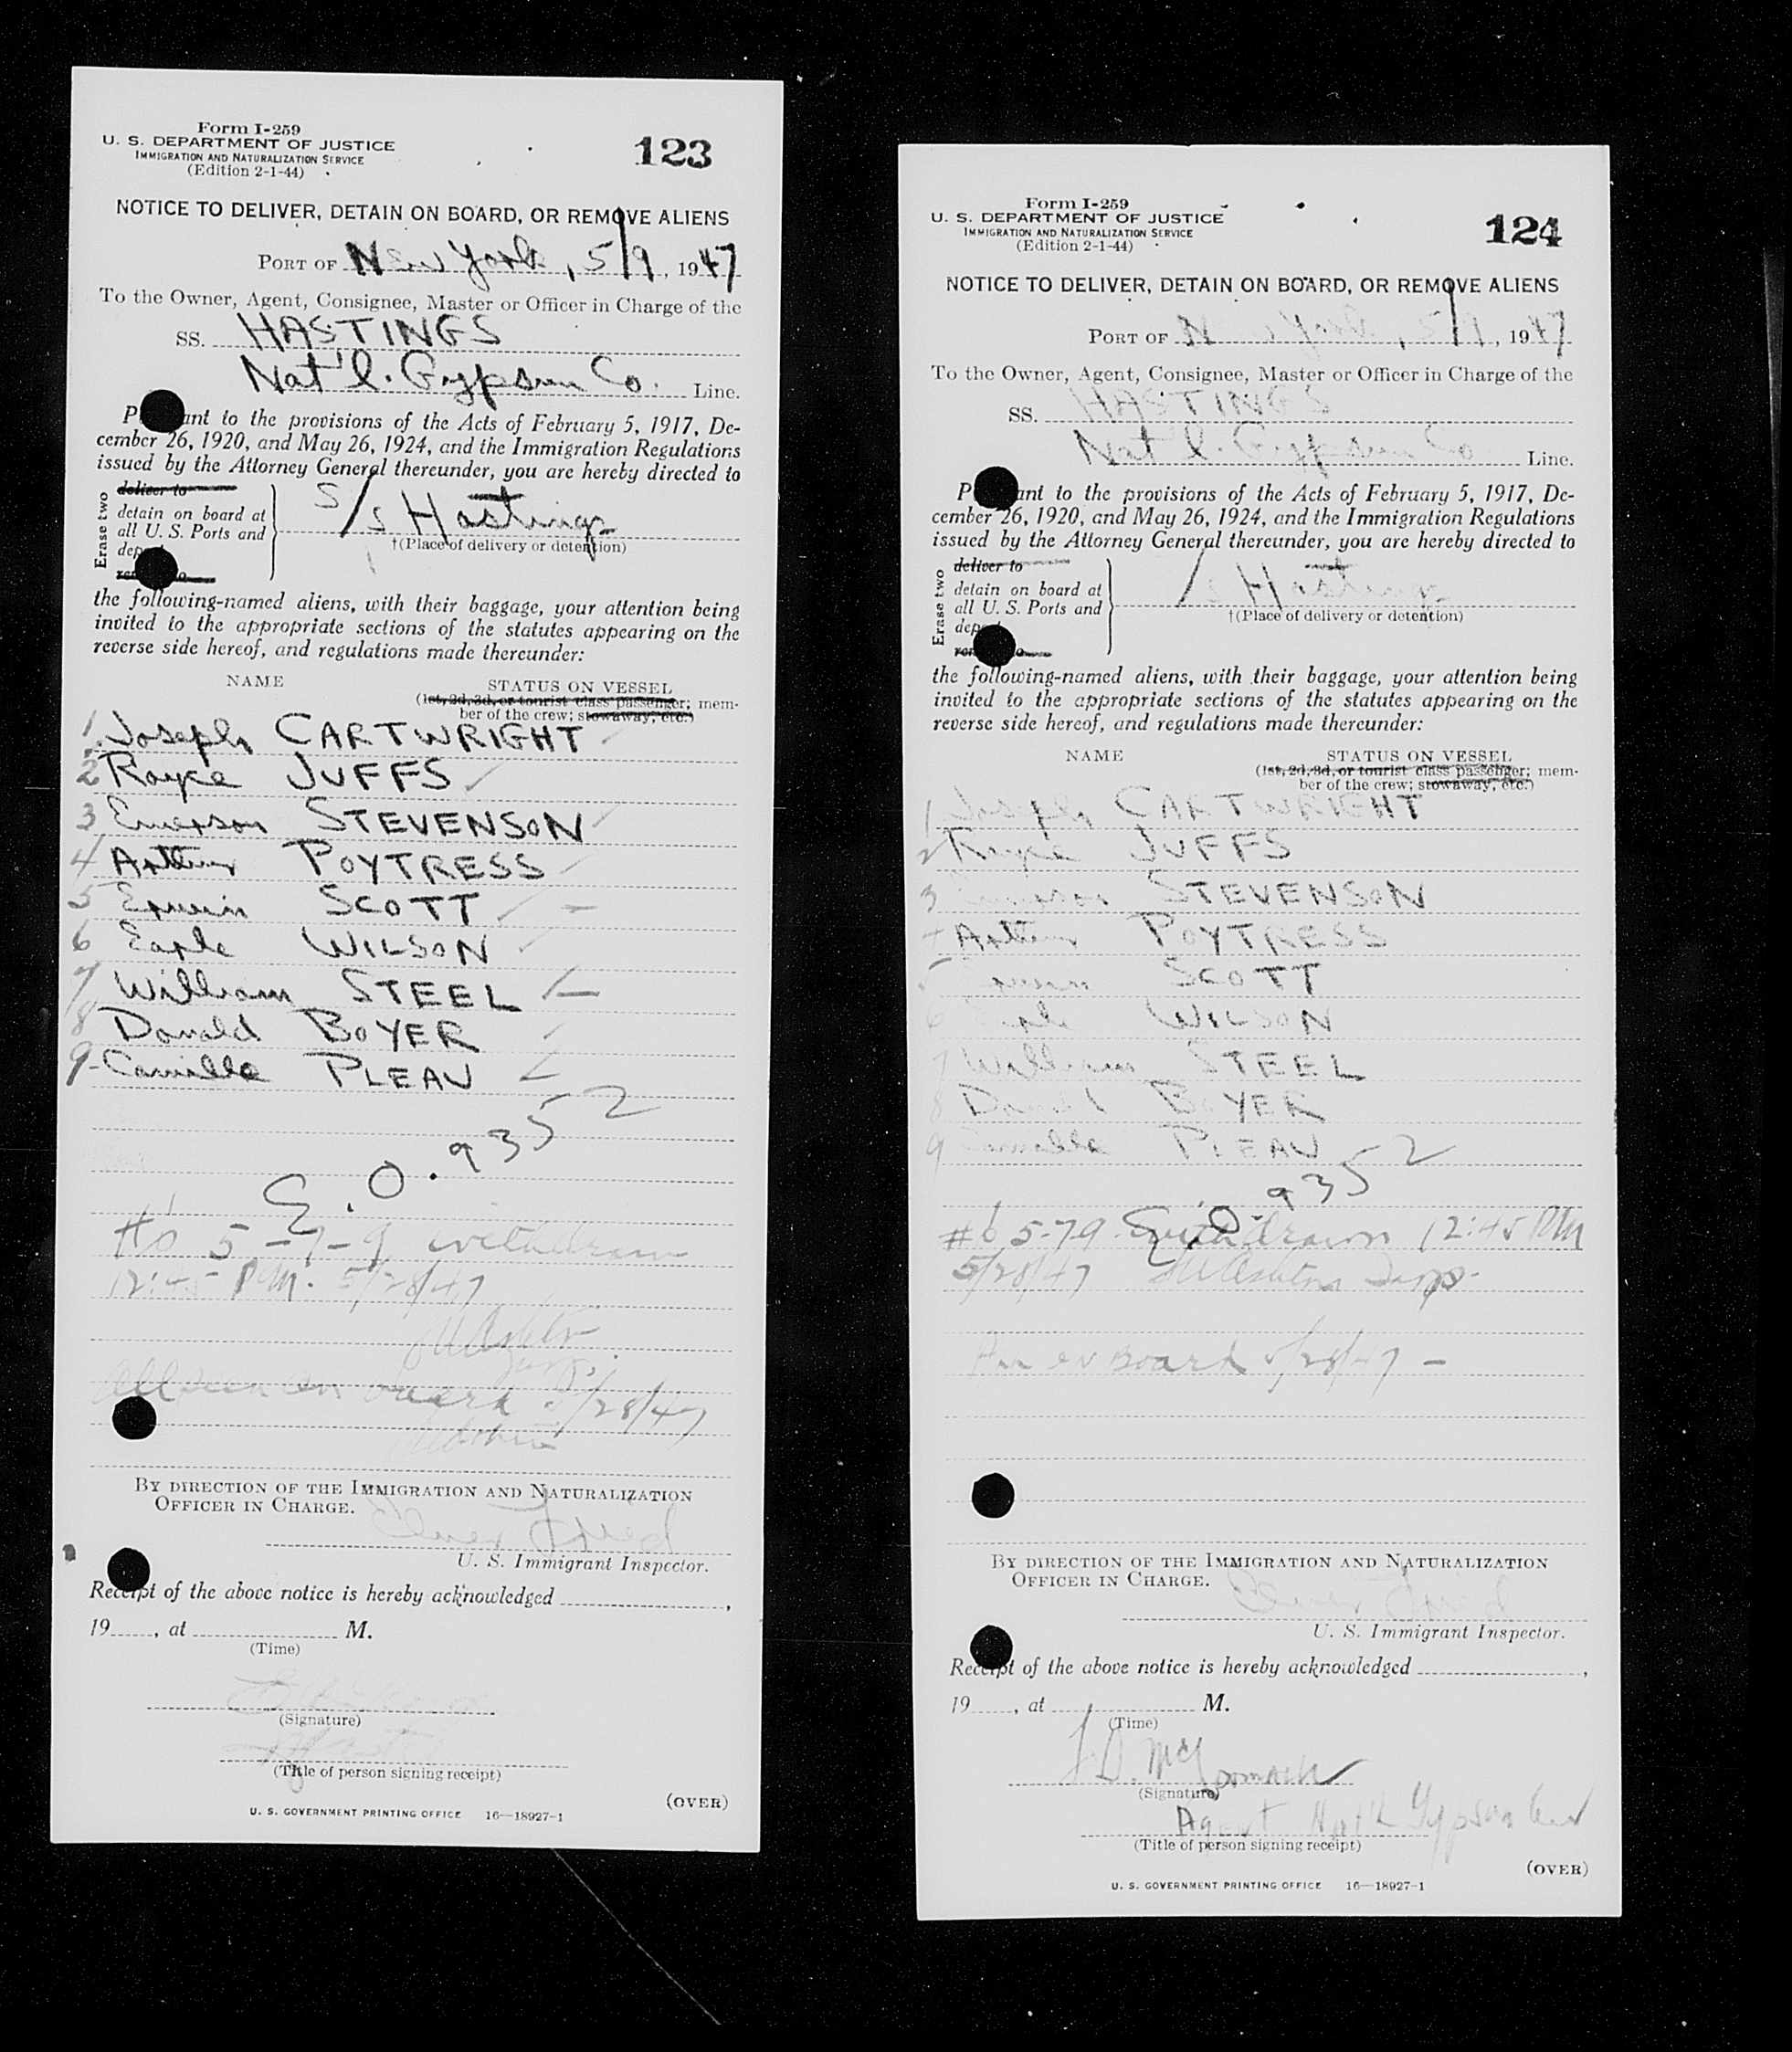 Form I-259
U. S. DEPARTMENT OF JUSTICE
IMMIGRATION AND NATURALIZATION SERVICE
(Edition 2-1-44)
123
NOTICE TO DELIVER, DETAIN ON BOARD, OR REMOVE ALIENS
PORT OF New York, 5/9, 1947
To the Owner, Agent, Consignee, Master or Officer in Charge of the
SS. HASTINGS
Nat'l. Gypsum Co. Line.
P ant to the provisions of the Acts of February 5, 1917, De-
cember 26, 1920, and May 26, 1924, and the Immigration Regulations
issued by the Attorney General thereunder, you are hereby directed to
Erase two
deliver to
detain on board at
all U. S. Ports and
dep
s/s Hastings
†(Place of delivery or detention)
the following-named aliens, with their baggage, your attention being
invited to the appropriate sections of the statutes appearing on the
reverse side hereof, and regulations made thereunder:
NAME STATUS ON VESSEL
(1st, 2d, 3d, or tourist class passenger; mem-
ber of the crew; stowaway, etc.)
1. Joseph CARTWRIGHT
2 Royce JUFFS
3 Emerson STEVENSON
4 Arthur POYTRESS
5 SCOTT
6 Earle WILSON
7 William STEEL
8 Donald BOYER
9- Camille PLEAU
E.O. 9352
#'s 5-7-9 withdrawn
12:45 P.M. 5/28/47
All seen on board 5/28/47
BY DIRECTION OF THE IMMIGRATION AND NATURALIZATION
OFFICER IN CHARGE.
U. S. Immigrant Inspector.
Receipt of the above notice is hereby acknowledged
19 , at M.
(Time)
(Signature)
(Title of person signing receipt)
(OVER)
U. S. GOVERNMENT PRINTING OFFICE 16—18927-1
Form I-259
U. S. DEPARTMENT OF JUSTICE
IMMIGRATION AND NATURALIZATION SERVICE
(Edition 2-1-44)
124
NOTICE TO DELIVER, DETAIN ON BOARD, OR REMOVE ALIENS
PORT OF New York, 5/9, 1947
To the Owner, Agent, Consignee, Master or Officer in Charge of the
SS. HASTINGS
Nat'l. Gypsum Co Line.
P ant to the provisions of the Acts of February 5, 1917, De-
cember 26, 1920, and May 26, 1924, and the Immigration Regulations
issued by the Attorney General thereunder, you are hereby directed to
Erase two
deliver to
detain on board at
all U. S. Ports and
dep
/s Hastings
†(Place of delivery or detention)
the following-named aliens, with their baggage, your attention being
invited to the appropriate sections of the statutes appearing on the
reverse side hereof, and regulations made thereunder:
NAME STATUS ON VESSEL
(1st, 2d, 3d, or tourist class passenger; mem-
ber of the crew; stowaway, etc.)
1 Joseph CARTWRIGHT
2 Royce JUFFS
3 Emerson STEVENSON
4 Arthur POYTRESS
5 SCOTT
6 Earle WILSON
7 William STEEL
8 Donald BOYER
9 Camille PLEAU
E.O. 9352
#'s 5-7-9 withdrawn 12:45 PM
5/28/47
on Board 5/28/47 -
BY DIRECTION OF THE IMMIGRATION AND NATURALIZATION
OFFICER IN CHARGE.
U. S. Immigrant Inspector.
Receipt of the above notice is hereby acknowledged
19 , at M.
(Time)
J. D. McCormack
(Signature)
Agent Nat'l Gypsum
(Title of person signing receipt)
(OVER)
U. S. GOVERNMENT PRINTING OFFICE 16—18927-1